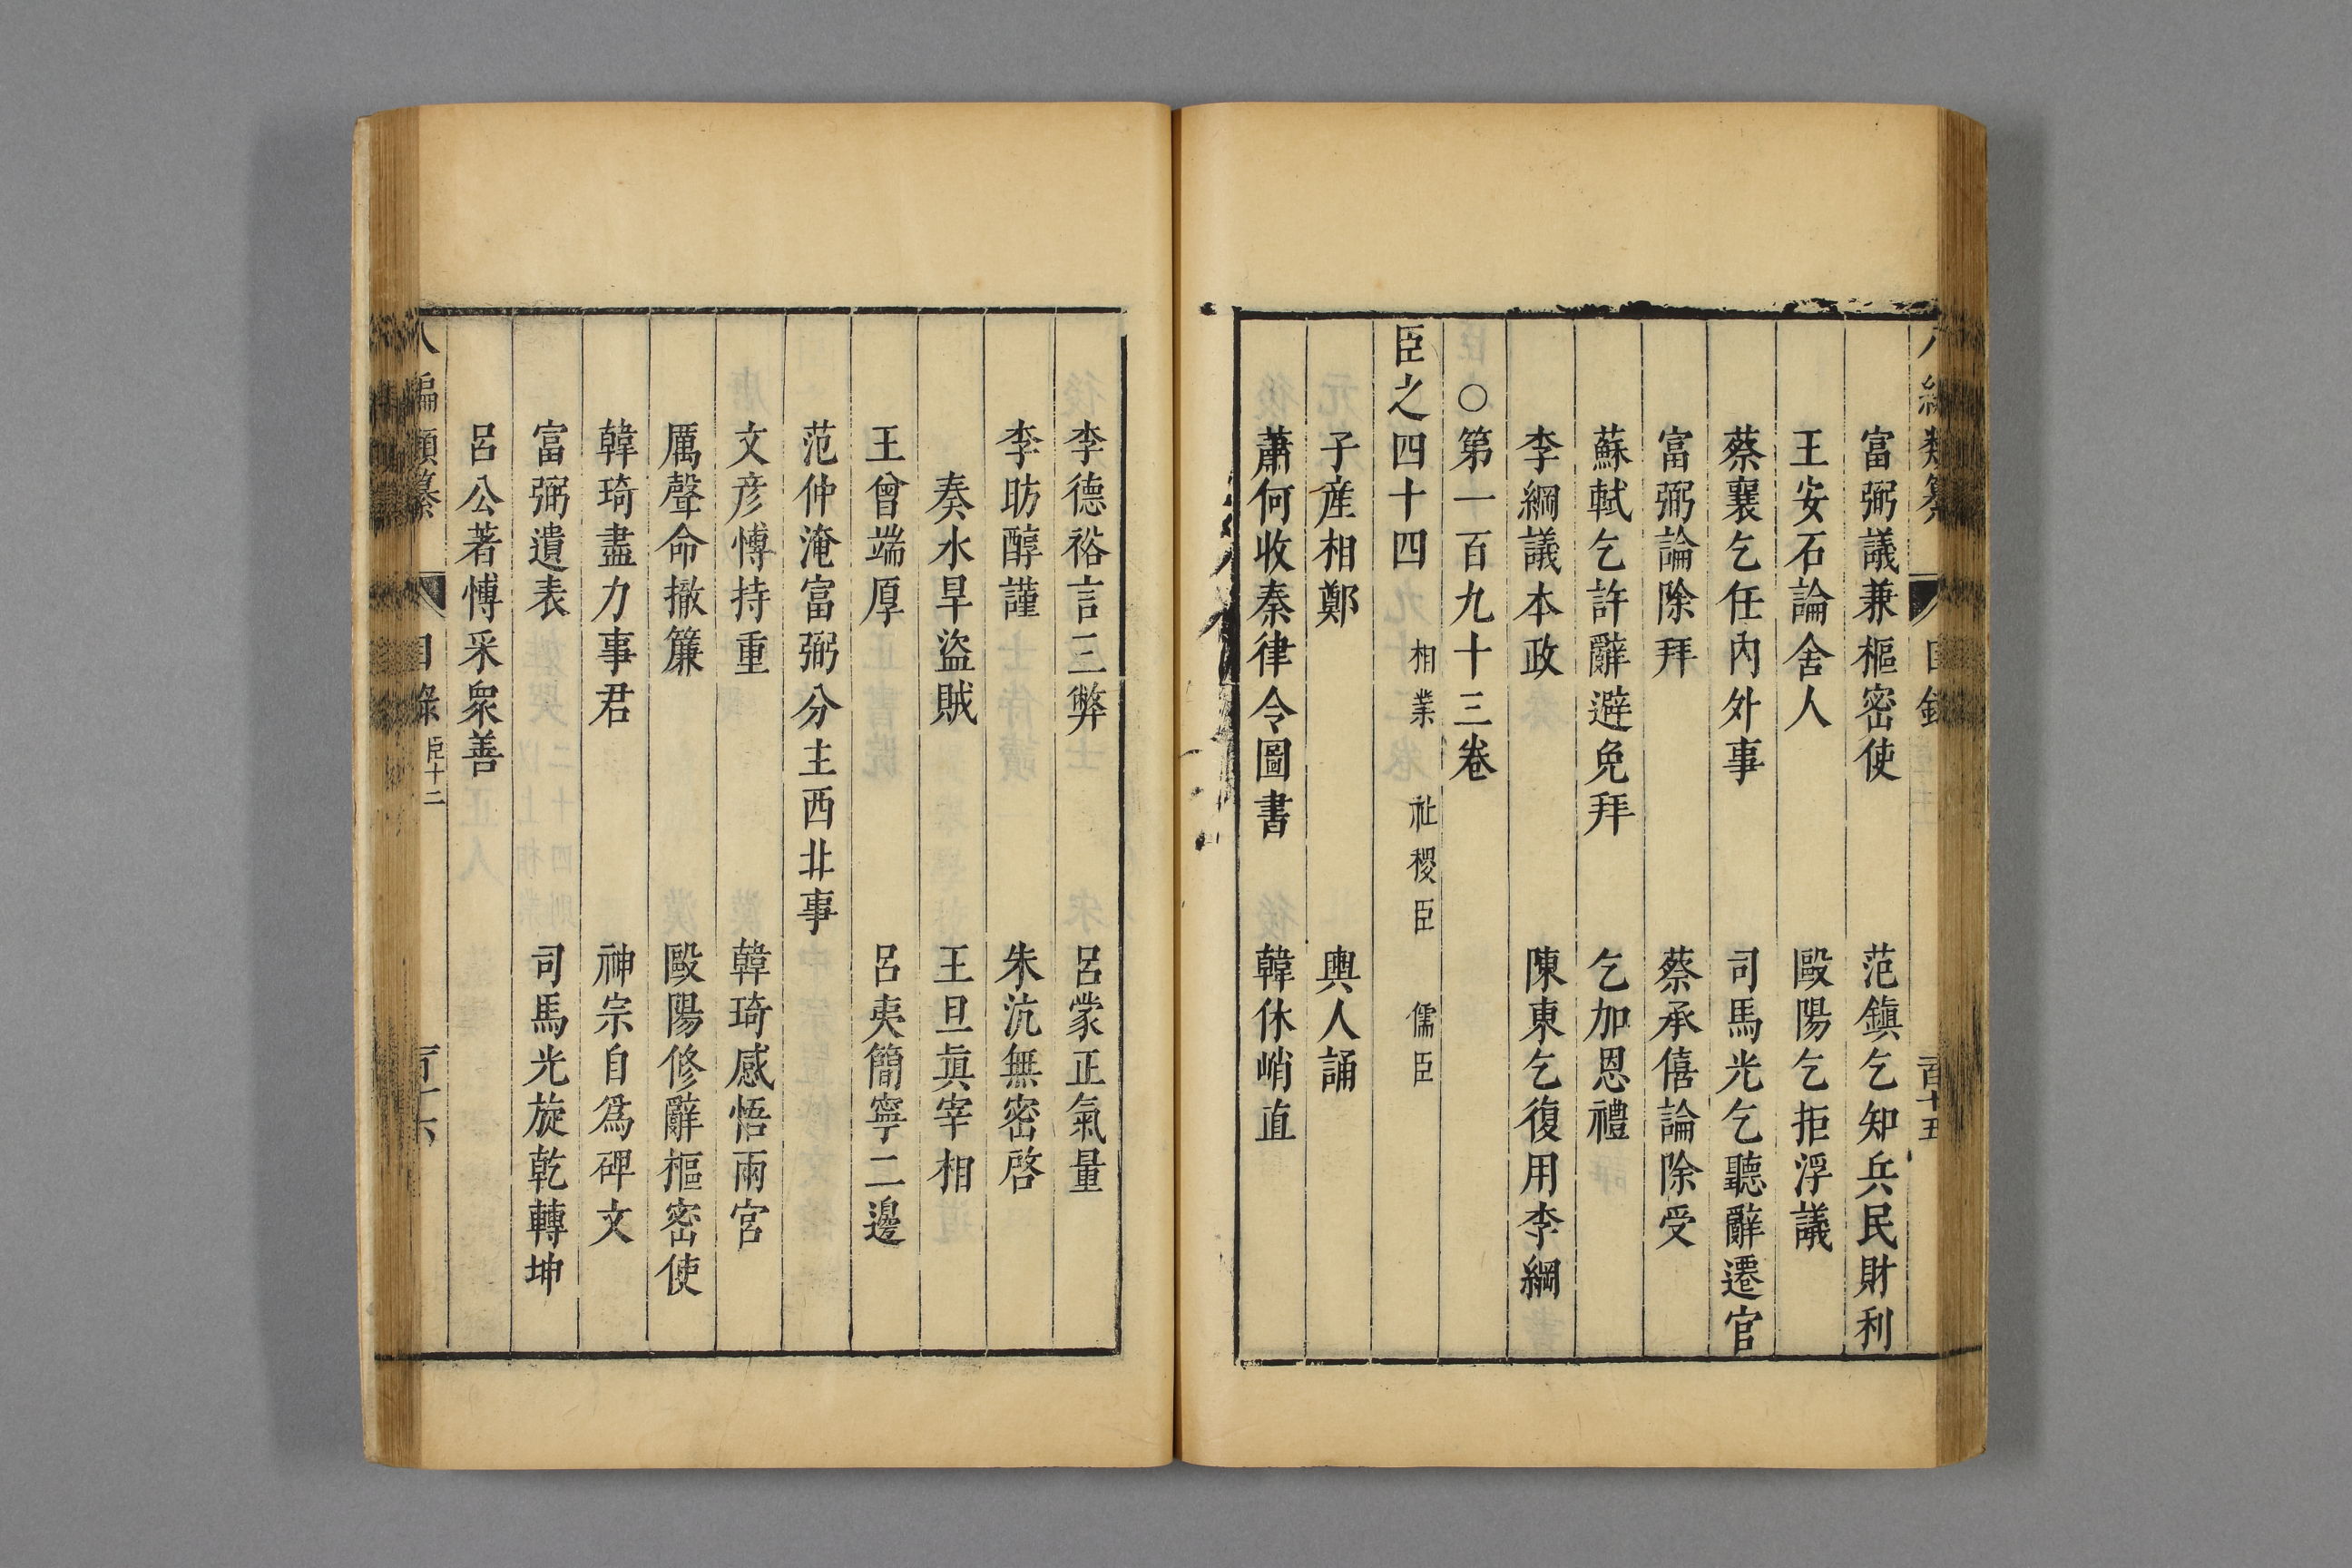 類纂 目錄 百十五
富弼議兼樞密使 范鎮乞知兵民財利
王安石論舍人 歐陽乞拒浮議
蔡襄乞任內外事 司馬光乞聽辭遷官
富弼論除拜 蔡承僖論除受
蘇軾乞許辭避免拜 乞加恩禮
李綱議本政 陳東乞復用李綱
○第一百九十三卷
臣之四十四 相業 社稷臣 儒臣
子産相鄭 輿人誦
蕭何收秦律令圖書 韓休峭直
李德裕言三弊 呂蒙正氣量
李昉醇謹 朱沆無密啓
奏水旱盜賊 王旦眞宰相
王曾端厚 呂夷簡寧二邊
范仲淹富弼分主西北事
文彦愽持重 韓琦感悟兩宮
厲聲命撤簾 歐陽修辭樞密使
韓琦盡力事君 神宗自爲碑文
富弼遺表 司馬光旋乾轉坤
呂公著愽采衆善
八編類纂 目錄 臣十二 百十六